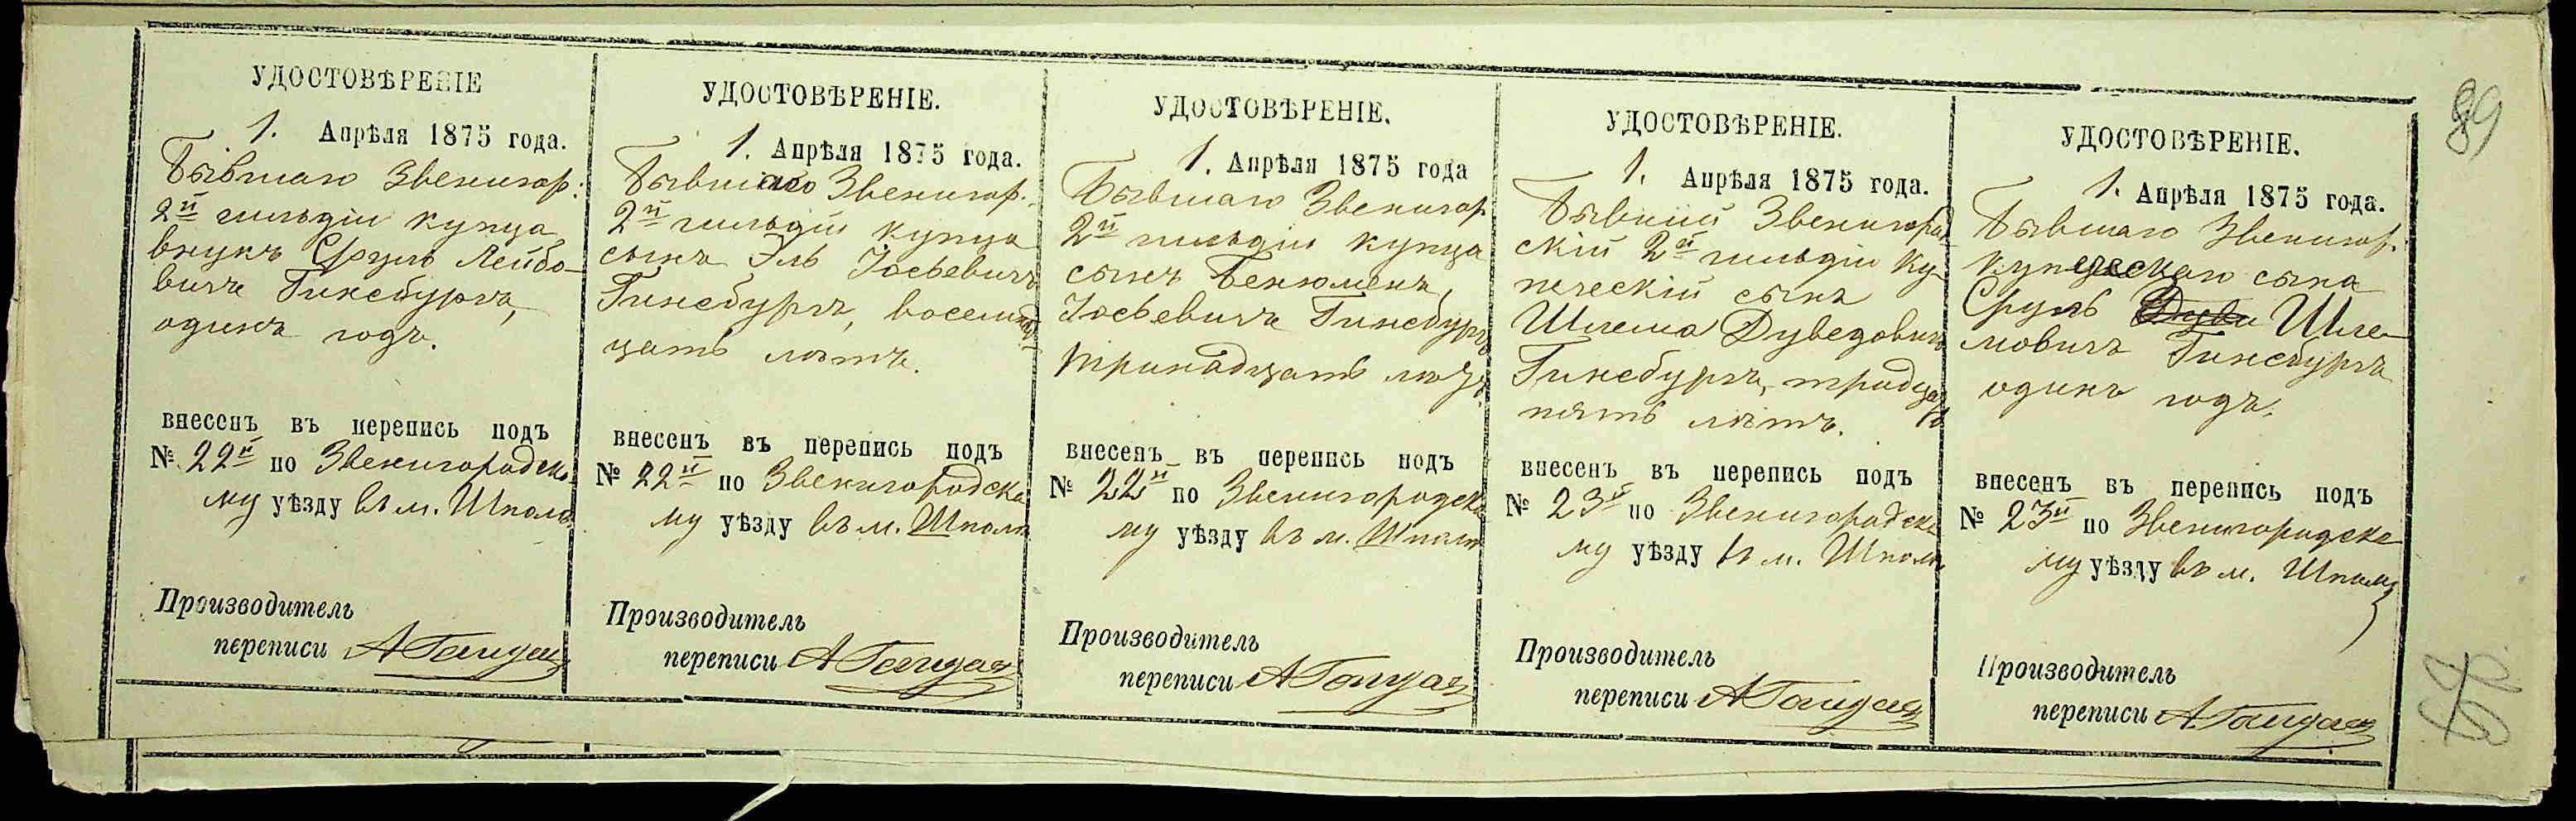 УДОСТОВѢРЕНІЕ
1. Апрѣля 1875 года.
Бывшаго Звенигор:
2й гильдіи купца
внукъ Сруль Лейбо-
вичъ Гинсбургъ,
одинъ годъ.
внесенъ въ перепись подъ
№ 22й по Звенигородско-
му уѣзду въ м. Шполѣ
Производитель
переписи
УДОСТОВѢРЕНІЕ.
1. Апрѣля 1875 года.
Бывшаго Звенигор.
2й гильдіи купца
сынъ Эль Іосьевичъ
Гинсбургъ, восемнад-
цать лѣтъ.
внесенъ въ перепись подъ
№ 22й по Звенигородско
му уѣзду въ м. Шполѣ
Производитель
переписи
УДОСТОВѢРЕНІЕ.
1. Апрѣля 1875 года
Бывшаго Звенигор
2й гильдіи купца
сынъ Бенюменъ
Іосьевичъ Гинсбургъ
тринадцать лѣтъ.
внесенъ въ перепись подъ
№ 22й по Звенигородско
му уѣзду въ м. Шполѣ
Производитель
переписи
УДОСТОВѢРЕНІЕ.
1. Апрѣля 1875 года.
Бывшій Звенигород
скій 2й гильдіи ку
печескій сынъ
Шлема Дуведовичъ
Гинсбургъ, тридцать
пять лѣтъ.
внесенъ въ перепись подъ
№ 23й по Звенигородско
му уѣзду въ м. Шполѣ
Производитель
переписи
УДОСТОВѢРЕНІЕ.
1. Апрѣля 1875 года.
Бывшаго Звенигор.
купеческаго сына
Сруль Шле-
мовичъ Гинсбургъ
одинъ годъ.
внесенъ въ перепись подъ
№ 23й по Звенигородско
му уѣзду въ м. Шполѣ
Производитель
переписи
89